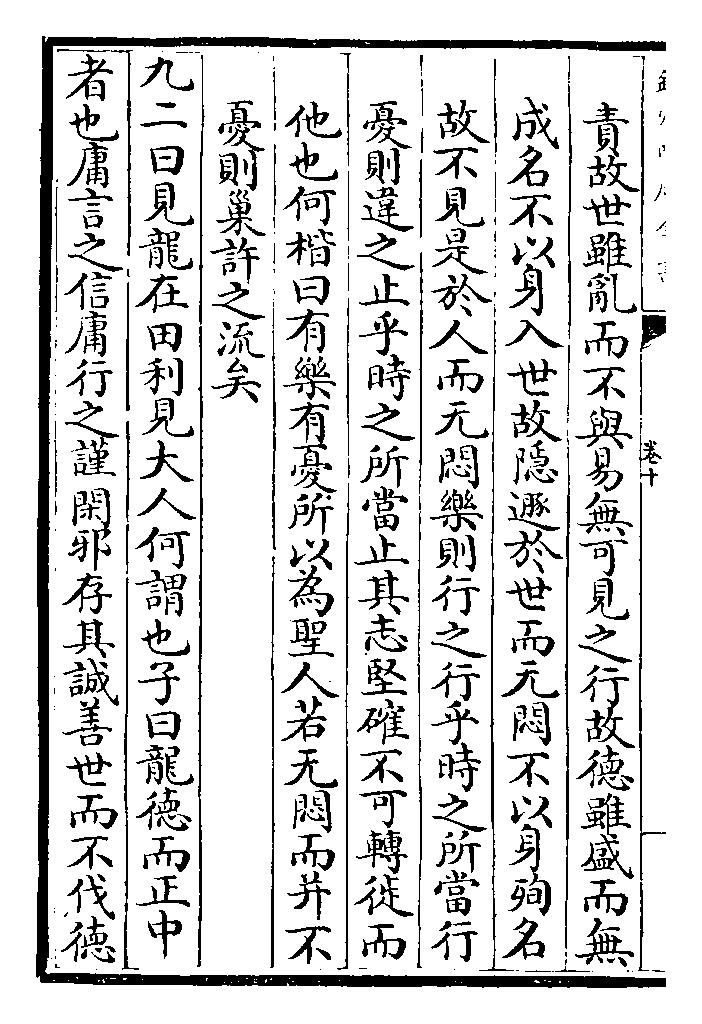 責故世雖亂而不與易無可見之行故德雖盛而無
成名不以身入世故隱遯於世而无悶不以身殉名
故不見是於人而无悶樂則行之行乎時之所當行
憂則違之止乎時之所當止其志堅確不可轉徙而
他也何楷曰有樂有憂所以為聖人若无悶而并不
憂則巢許之流矣
九二曰見龍在田利見大人何謂也子曰龍德而正中
者也庸言之信庸行之謹閑邪存其誠善世而不伐德
卷十